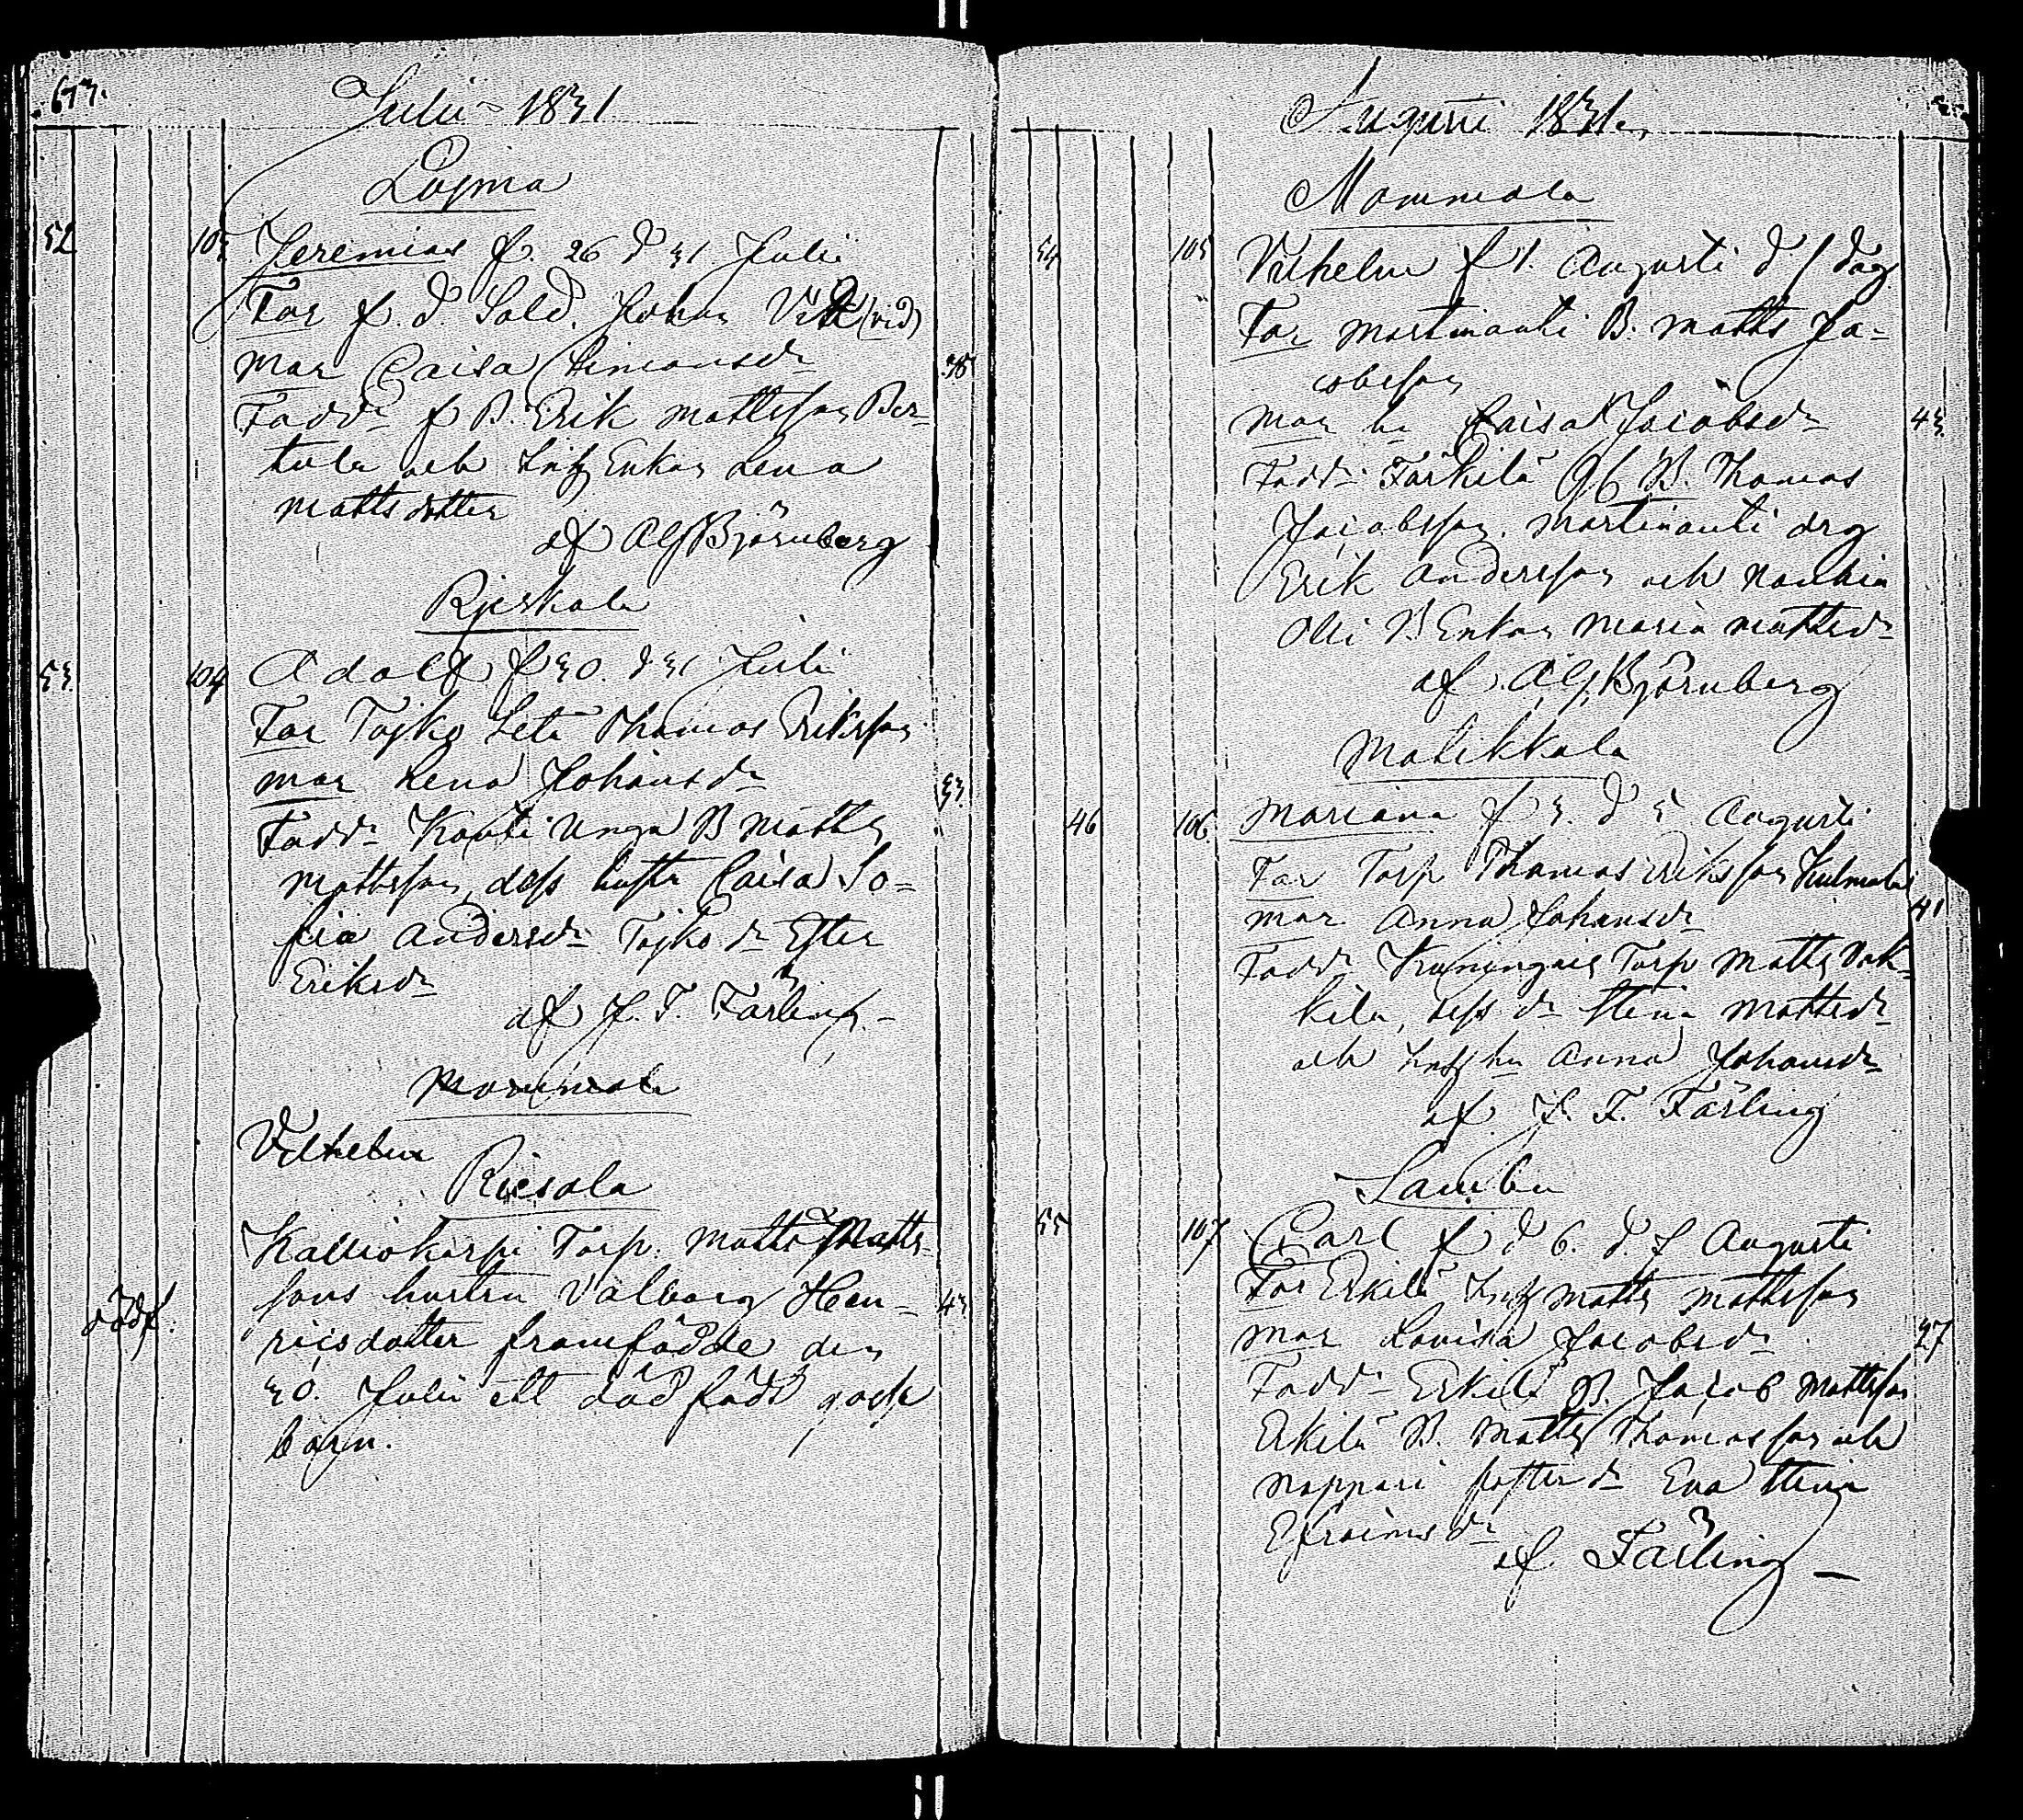 673.
Julii 1831
Lojma
52 103 Jeremias f. 26 d 31 Julii
Far f. d. Sold. Johan Vitk (vid)
Mor Caisa Simonsdr 38
Faddr f B. Erik Mattsson Ber-
tula och Enkan Lena
Mattsdotter
af Alf Björnberg
Rjeskala
53 104 Adolf f 30. d 31 Julii
Far Tojko Thomas Eriksson
Mor Lena Johansdr 33
Faddr Kouti Unga B Matts
Mattsson, dess hustru Caisa So-
fia Andersdr Tojko dr Ester
Eriksdr
af J. F. Färling
Mommola
Vilhelm
Riesola
Kalliokorpi Torp. Matts Matts-
sons hustru Valborg Hen-
ricsdotter framfödde den 43
dödf.
30. Julii ett dödfödt gosse
barn.
Augusti 1831
Mommola
54 105 Vilhelm f 1. Augusti d / dag
Far Martinanti B. Matts Ja-
cobsson
Mor hu Caisa Jacobsdr 43
Faddr Färkilä B. Thomas
Jacobsson, Martinanti drg
Erik Andersson och
Olli B Enkan Maria Mattsdr
af Alf Björnberg
Matikkala
46 106 Mariana f 3. d 5 Augusti
Far Torp Thomas Eriksson
Mor Anna Johansdr 41
Faddr Kuningais Torp Matts
kila, dess dr Stina Mattsdr
och hu Anna Johansdr
af J. F. Färling
Sauku
55 107 Carl f d 6. d. 7 Augusti
Far Erkilä Matts Mattsson
Mor Lovisa Jacobsdr 27
Faddr Erkilä B. Jacob Mattsson
Erkilä B. Matts Thomasson och
Nappari dr Eva Stina
Efraimsdr
af Färling